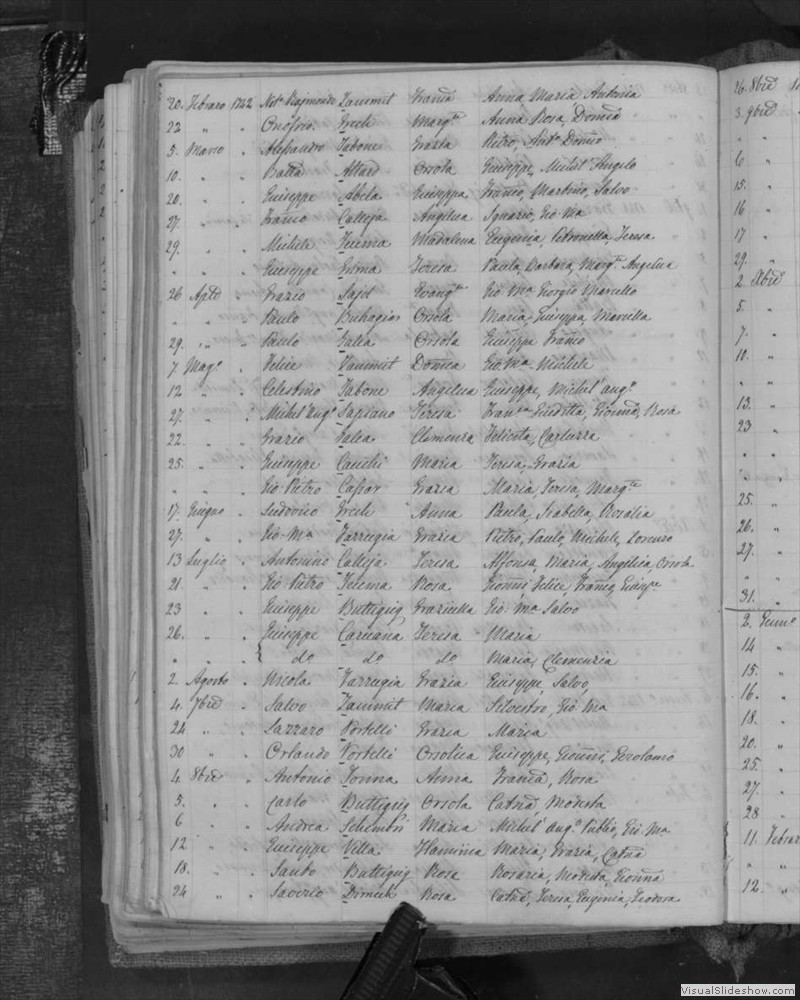 20. Febraro 1722 Not.o Rajmondo Zammit Franca Anna, Maria, Antonia
22 " " Onofrio Ercili Marg.ta Anna Rosa, Domca
5. Marzo " Alessandro Tabone Grazia Pietro, Ant.o Domco
10. " " Batta Attard Orsola Giuseppe, Michel' Angelo
20. " " Giuseppe Abela Giuseppa Franco, Martino, Salvo
27. " " Franco Calleja Angelica Ignazio, Gio Ma
29. " " Michele Madalena Eugenia, Petronella, Teresa
" " " Giuseppe Grima Teresa Paula, Barbara, Marg.ta Angelica
26 Aple " Grazio Sajd Evang.ta Gio Ma Giorgio Marcello
" " " Paulo Buhagiar Orsola Maria, Giuseppa, Marcella
29. " " Paulo Galea Orsola Giuseppe Franco
7. Mag.o " Felice Zammit Domca Gio. Ma Michele
12 " " Celestino Tabone Angelica Giuseppe, Michel' Ang.o
27. " " Michel' Ang.o Sapiano Teresa Fran.ca Giuditta, Gionna, Rosa
22. " " Grazio Galea Clemenza Felicita, Catarina
25. " " Giuseppe Cauchi Maria Teresa, Grazia
" " " Gio Pietro Cassar Grazia Maria, Teresa, Marg.ta
17. Giugno " Ludovico Ercili Anna Paula, Isabella, Rosalia
27. " " Gio Ma Farrugia Grazia Pietro, Paulo, Michele, Lorenzo
13 Luglio " Antonino Calleja Teresa Alfonsa, Maria, Angelica, Orsola
21. " " Gio Pietro Rosa Gionni, Felice, Franco, Giusp.e
23 " " Giuseppe Buttigieg Graziulla Gio: Ma Salvo
26. " " Giuseppe Caruana Teresa Maria
" " " do do do Maria, Clemenzia
2. Agosto " Nicola Farrugia Grazia Giuseppe, Salvo,
4. 7bre " Salvo Zammit Maria Silvestro, Gio Ma
24 " " Lazzaro Portelli Grazia Maria
30 " " Orlando Portelli Orsolica Giuseppe, Gionni, Gerolamo
4. 8bre " Antonio Tonna Anna Franca, Rosa
5. " " Carlo Buttigieg Orsola Catna Modesta
6 " " Andrea Schembri Maria Michel' Ang.o Publio, Gio: Ma
12 " " Giuseppe Villa Flaminia Maria, Grazia, Catna
18. " " Santo Buttigieg Rosa Rosaria, Modesta, Gionna
24 " " Saverio Dimech Rosa Catna, Teresa, Eugenia, Teodora
26. 8bre
3. 9bre
" "
6 "
15. "
16 "
17 "
29. "
2 Xbre
5. "
7. "
10. "
" "
13. "
23 "
" "
" "
25. "
26. "
27. "
" "
31. "
2. Genn.o
14 "
15. "
16. "
18. "
20. "
25. "
27. "
28 "
11. Febrar
" "
12. "
VisualSlideshow.com